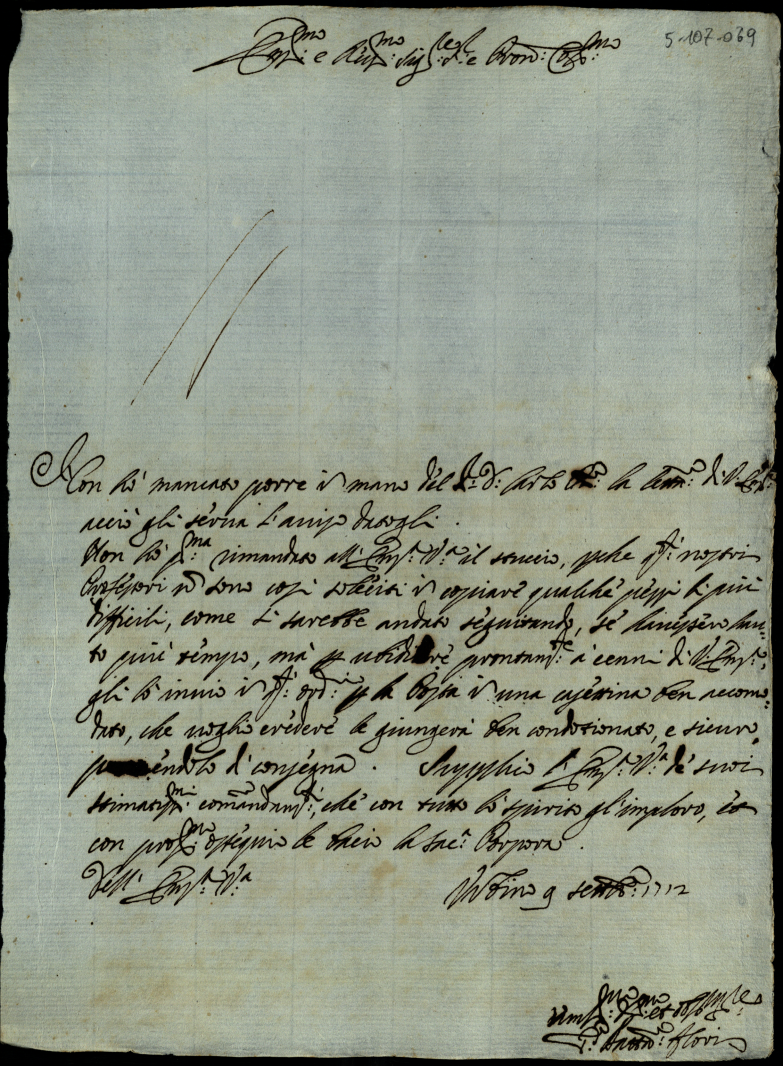 5-107-039
Em.mo e Rev.mo Sig.re e Pron: Col.mo
Non hò mancato porre in mano del S.r D: Carlo la lettera di V. Em.za
acciò gli serva l'aviso datogli.
Non hò p.ma rimandato all'Em.za V.ra il stuccio, p che q.i nostri
Professori nò sono così soleciti in copiare qualche pezzi li più
difficili, come si sarebbe andato seguitando, se havessero hau-
to più tempo, mà p ubidire prontam.te à cenni di V. Em.za,
gli lo invio in q.o ord.o p la Posta in una cassettina ben accomo-
dato, che voglio credere le giungerà ben conditionato, e sicuro,
di consegna. Supplico l'Em.za V.ra de suoi
stimatiss.mi comandam.ti, che con tutto lo spirito gl'imploro, et
con prof.mo ossequio le bacio la Sac.a Porpora.
Dell'Em.za V.ra
Urbino 9 settb.e 1712
Um.mo et obl.mo